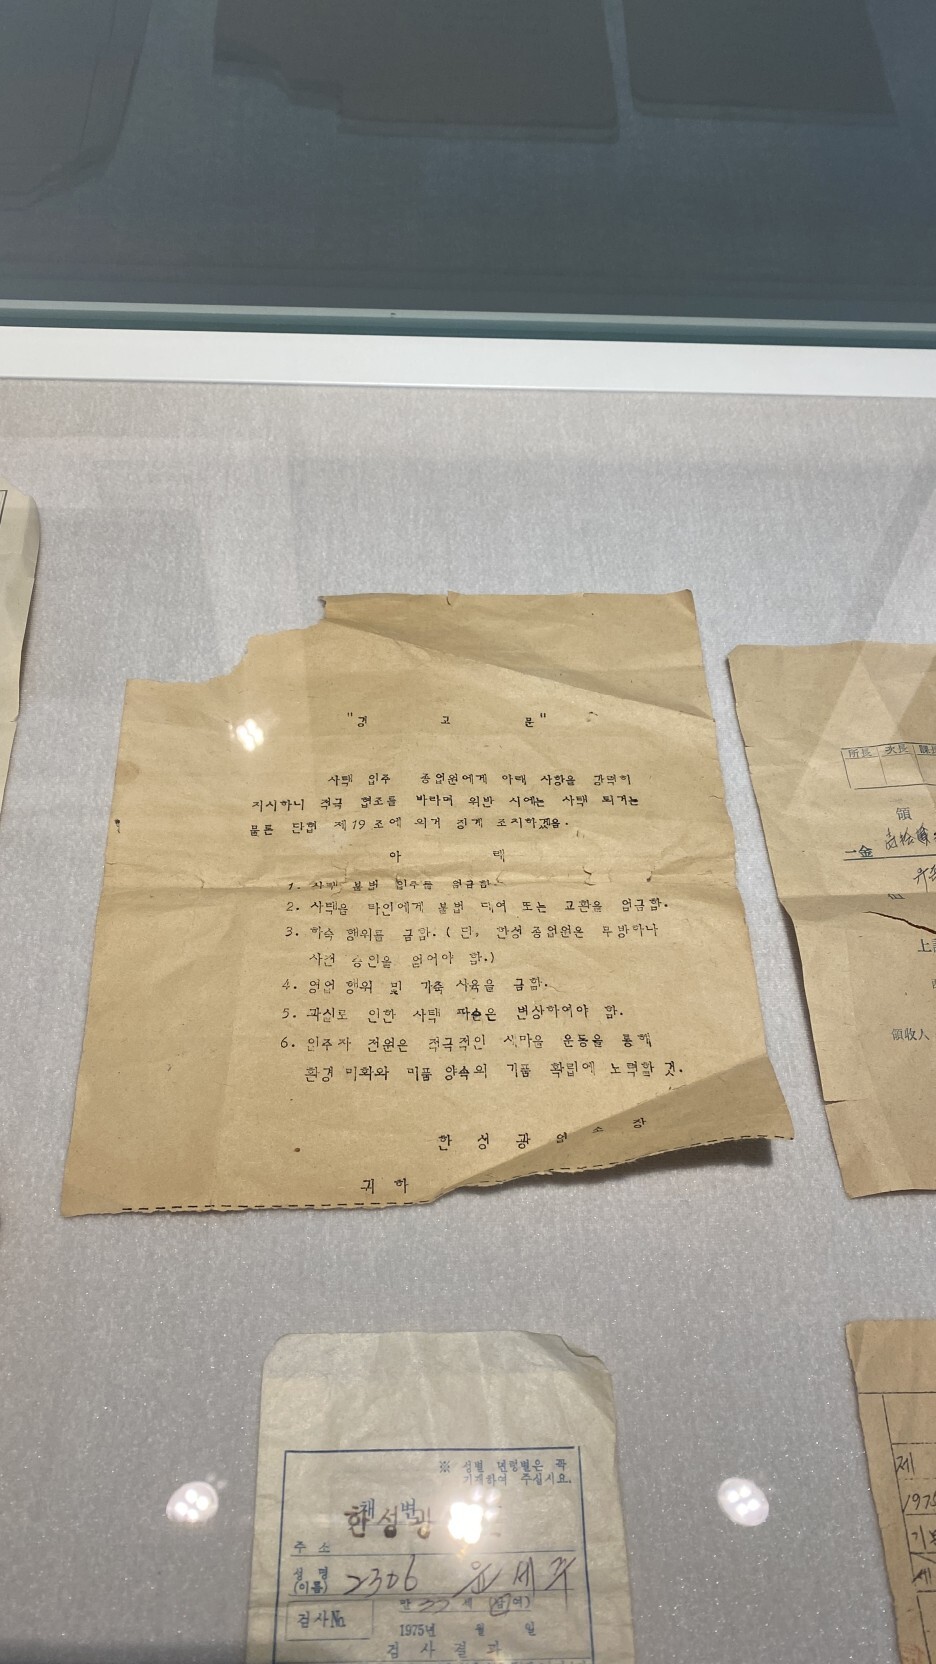 "경 고 문"
사택 입주 종업원에게 아래 사항을 강력히
지시하니 적극 협조를 바라며 위반 시에는 사택 퇴거는
물론 단협 제19조에 의거 징계 조치하겠음.
아 래
1. 사택 불법 입주를 엄금함.
2. 사택을 타인에게 불법 대여 또는 교환을 엄금함.
3. 하숙 행위를 금함. (단, 한성 종업원은 무방하나
사전 승인을 얻어야 함.)
4. 영업 행위 및 가축 사육을 금함.
5. 과실로 인한 사택 파손은 변상하여야 함.
6. 입주자 전원은 적극적인 새마을 운동을 통해
환경 미화와 미품 양속의 기품 확립에 노력할 것.
한 성 광 업 소 장
귀 하
所長 次長
領
一金
上記
領收人
※ 성별 연령별은 꼭
기재하여 주십시요.
채 변
한성광
주 소
성 명
(이름) 2306 윤세주
만 22 세 (남 여)
검사№
1975년 월 일
검 사 결 과
제
1975